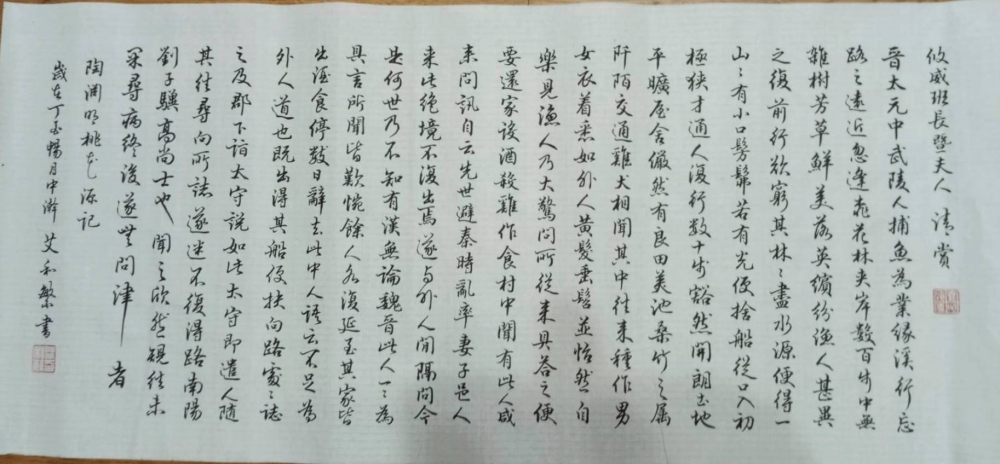 攸威班長暨夫人 清賞
晉太元中武陵人捕魚為業緣溪行忘
路之遠近忽逢桃花林夾岸數百步中無
雜樹芳草鮮美落英繽紛漁人甚異
之復前行欲窮其林林盡水源便得一
山山有小口髣髴若有光便捨船從口入初
極狹才通人復行數十步豁然開朗土地
平曠屋舍儼然有良田美池桑竹之屬
阡陌交通雞犬相聞其中往來種作男
女衣着悉如外人黃髮垂髫並怡然自
樂見漁人乃大驚問所從來具答之便
要還家設酒殺雞作食村中聞有此人咸
來問訊自云先世避秦時亂率妻子邑人
來此絕境不復出焉遂與外人間隔問今
是何世乃不知有漢無論魏晉此人一一為
具言所聞皆歎惋餘人各復延至其家皆
出酒食停數日辭去此中人語云不足為
外人道也既出得其船便扶向路處處誌
之及郡下詣太守說如此太守即遣人隨
其往尋向所誌遂迷不復得路南陽
劉子驥高尚士也聞之欣然親往未
果尋病終後遂無問津者
陶淵明桃花源記
歲在丁酉暢月中澣 艾和繁書